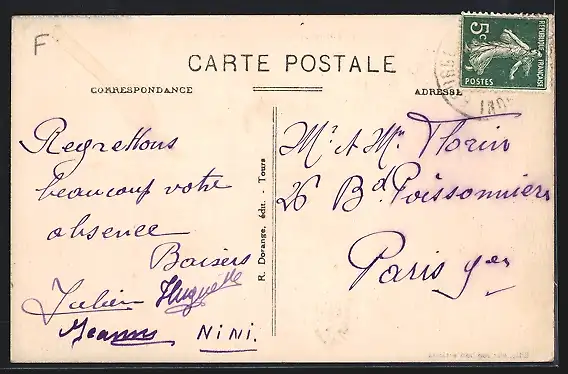 F
CARTE POSTALE
CORRESPONDANCE
ADRESSE
RÉPUBLIQUE FRANÇAISE
5c
POSTES
Regrettons
beaucoup votre
absence
Baisers
Julien Huguette
Jeanne NiNi.
R. Dorange, édit. - Tours
Mr et Mme Florin
26 Bd Poissonniers
Paris